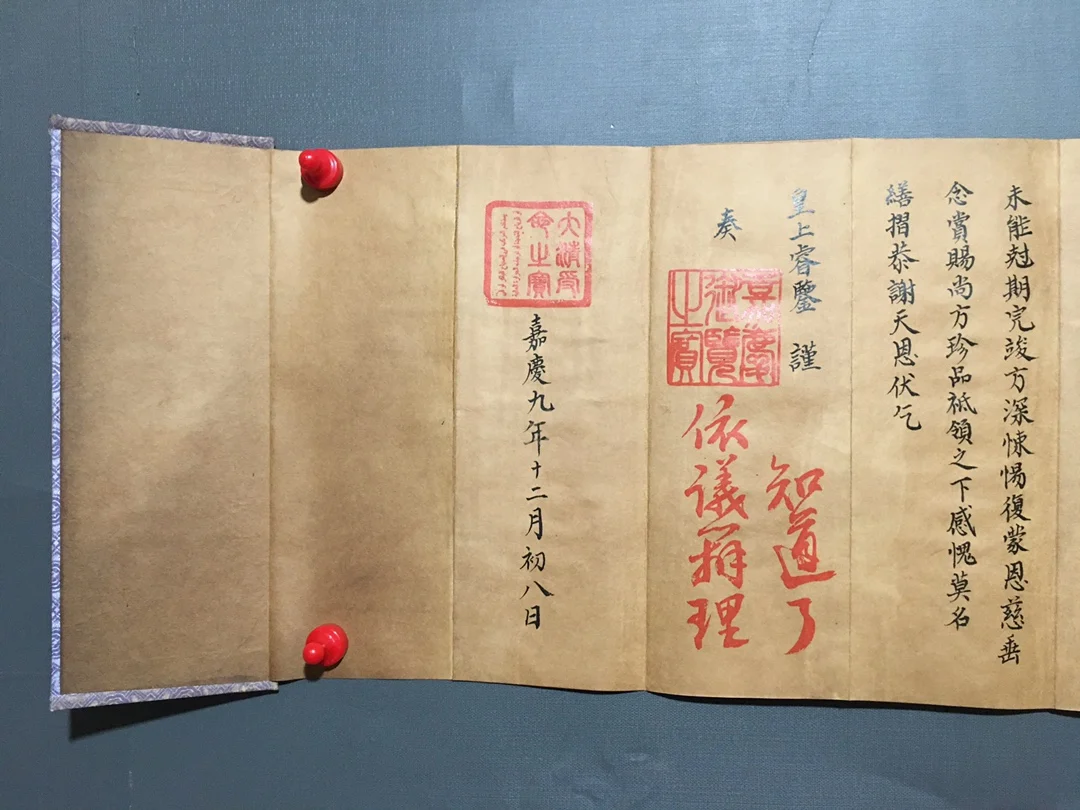 未能尅期完竣方深悚惕復蒙恩慈垂
念賞賜尚方珍品祗領之下感愧莫名
繕摺恭謝天恩伏乞
皇上睿鑒 謹
奏
知道了
依議辦理
嘉慶御覽之寶
大清受命之寶
嘉慶九年十二月初八日